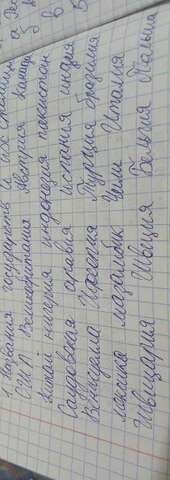 1 Названия государств и их столиц
США Великобритания Австрия Канада
Китай нигерия индонезия пакистан
Саудовская аравия испания индия
Венесуэла Япония Турция бразилия
мексика Чили Италия
Швейцария Швеция Бельгия Польша